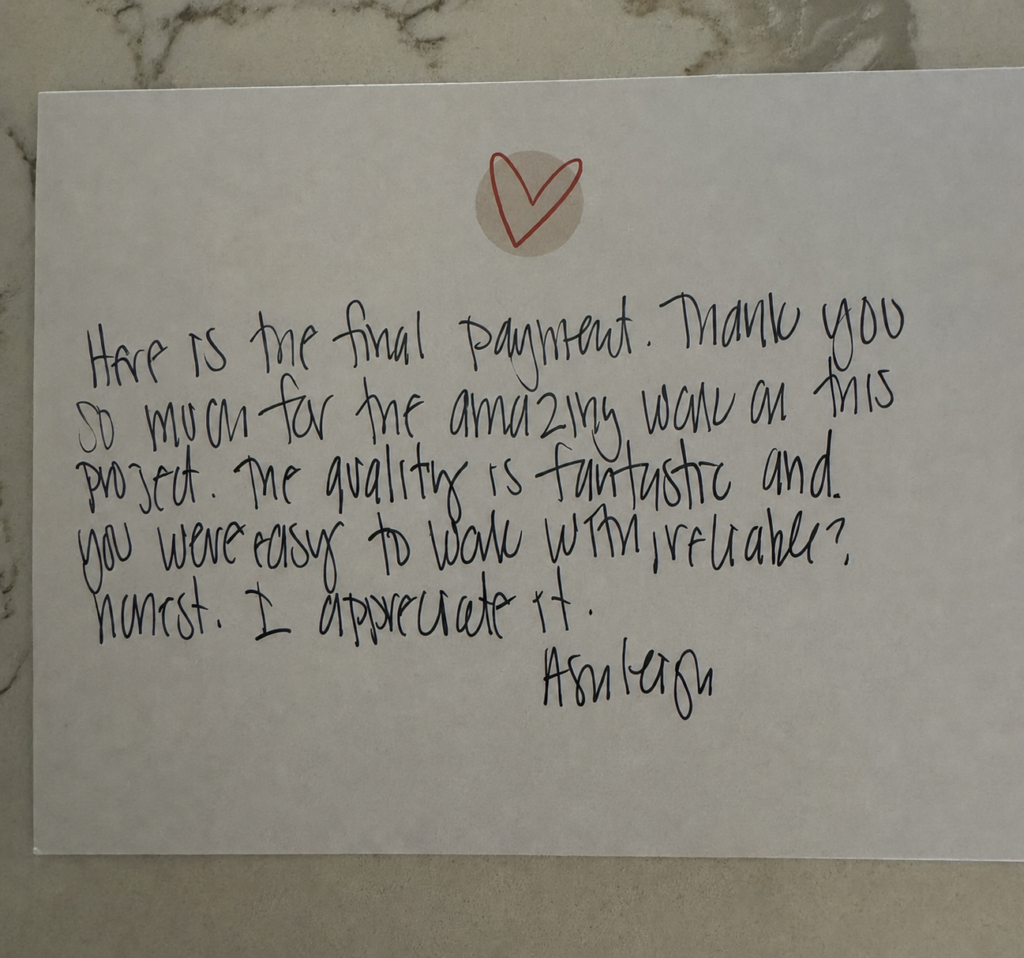 Here is the final payment. Thank you
so much for the amazing work on this
project. The quality is fantastic and
you were easy to work with, reliable &
honest. I appreciate it.
Ashleigh